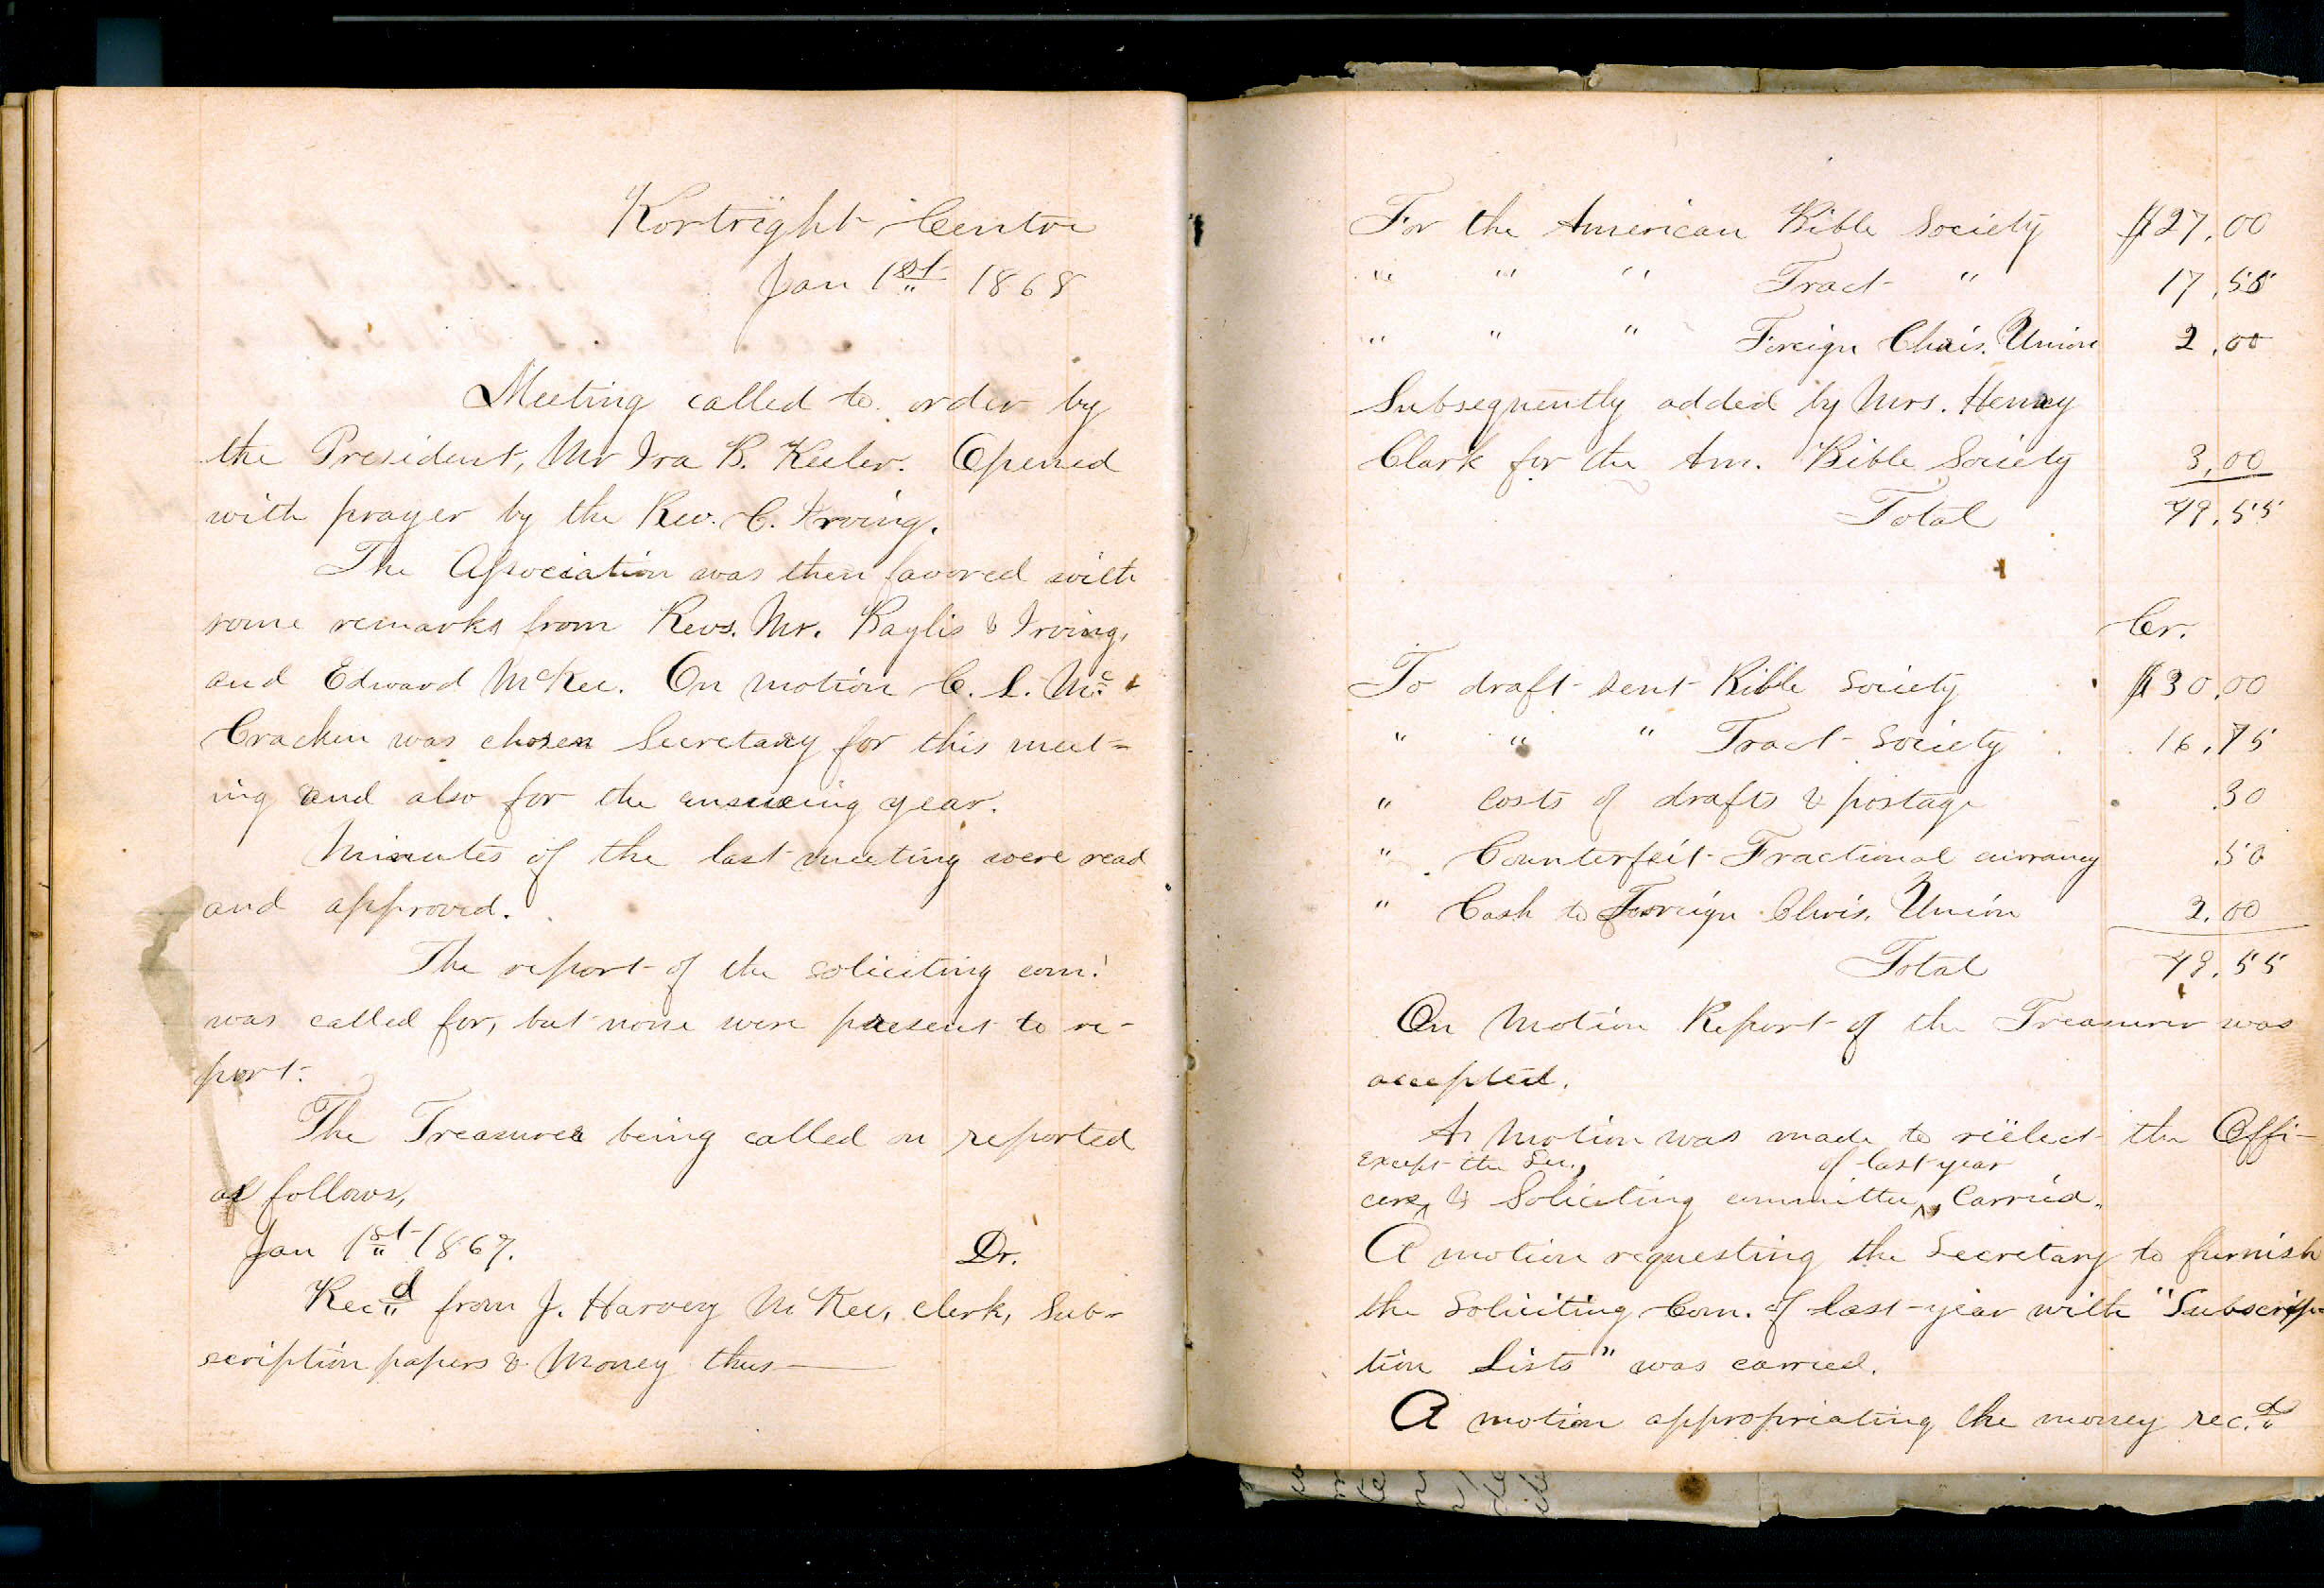 Kortright Centre
Jan 1st 1868
Meeting called to order by
the President, Mr Ira B. Keeler. Opened
with prayer by the Rev. C. Irving.
The Association was then favored with
some remarks from Revs. Mr. Baylis & Irving,
and Edward McKee. On motion C. L. Mc
Cracken was chosen Secretary for this meet=
ing and also for the ensueing year.
Minutes of the last meeting were read
and approved.
The report of the soliciting com.
was called for, but none were present to re-
port.
The Treasurer being called on reported
as follows,
Jan 1st 1867. Dr.
Recd from J. Harvey McKee, clerk, Sub-
scription papers & Money thus —
For the American Bible Society $27.00
" " " Tract " 17.55
" " " Foreign Chris. Union 2.00
Subsequently added by Mrs. Henry
Clark for the Am. Bible Society 3.00
Total 49.55
Cr.
To draft sent Bible Society $30.00
" " " Tract Society 16.75
" costs of drafts & postage .30
" Counterfeit Fractional currancy .50
" Cash to Foreign Chris. Union 2.00
Total 49.55
On Motion Report of the Treasurer was
accepted.
A motion was made to reëlect the Offi-
except the Sec., of last year
cers, & Soliciting committee, Carried.
A motion requesting the Secretary to furnish
the Soliciting Com. of last year with "Subscrip=
tion Lists" was carried.
A motion appropriating the money rec.d